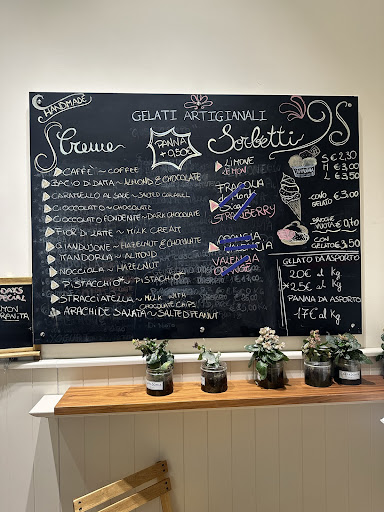 HANDMADE
GELATI ARTIGIANALI
Creme
PANNA
+0,50€
Sorbetti
CAFFÈ ~ COFFEE
BACIO DI DATA ~ ALMOND & CHOCOLATE
CARAMELLO AL SALE ~ SALTED CARAMEL
CIOCCOLATO ~ CHOCOLATE
CIOCCOLATO FONDENTE ~ DARK CHOCOLATE
FIOR DI LATTE ~ MILK CREAM
GIANDUIONE ~ HAZELNUT & CHOCOLATE
MANDORLA ~ ALMOND
NOCCIOLA ~ HAZELNUT
PISTACCHIO ~ PISTACHIO
STRACCIATELLA ~ MILK WITH
CHOCOLATE CHIPS
ARACHIDE SALATA ~ SALTED PEANUT
LIMONE
LEMON
FRAGOLA
STRAWBERRY
ARANCIA
VALENCIA
ORANGE
S € 2,30
M € 3,00
L € 3,50
CONO
GELATO
€ 3,00
BRIOCHE
VUOTA € 0,70
CON
GELATO € 3,50
GELATO DA ASPORTO
20€ al kg
*25€ al kg
PANNA DA ASPORTO
17€ al kg
SPECIAL